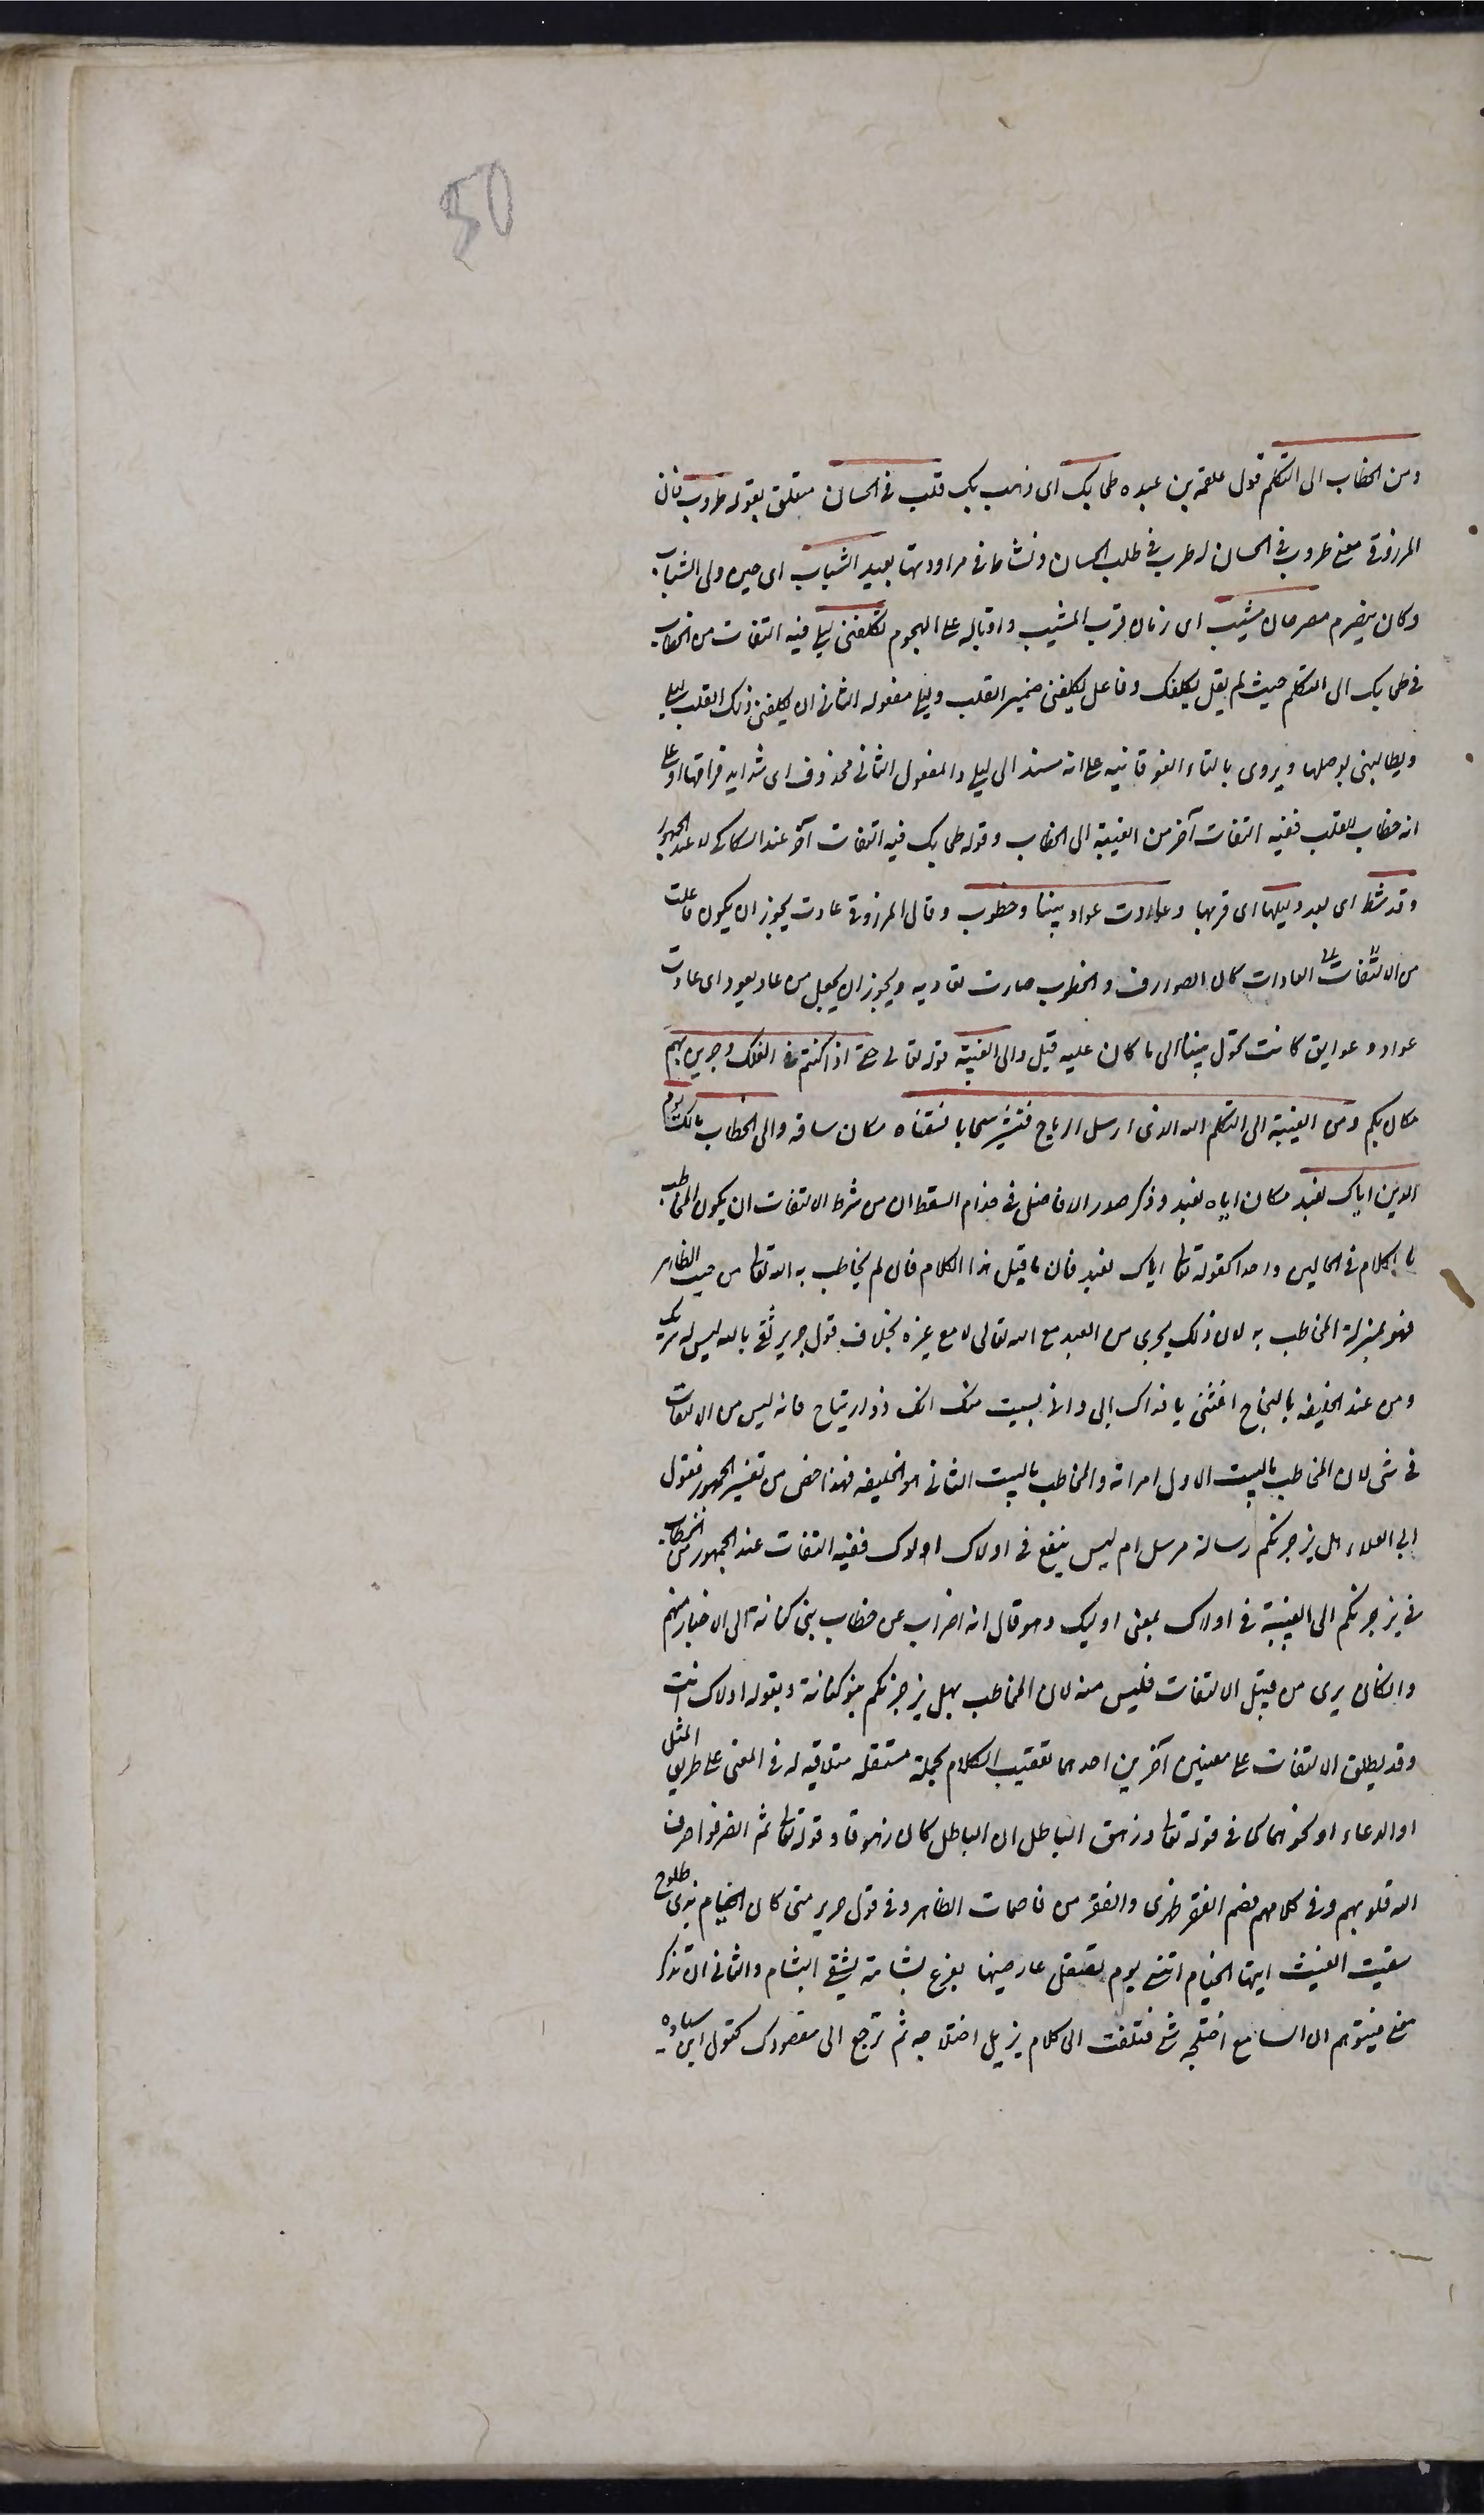 50
ومن الخطاب الى التكلم قول علقمة بن عبده طحا بك اى ذهب بك قلب فى الحسان متعلق بقوله طروب قال
المرزوقى معنى طروب فى الحسان له طرب فى طلب الحسان ونشاط فى مراودتها بعيد الشباب اى حين ولى الشباب
وكان ينصرم عصر حان مشيب اى زمان قرب المشيب واقباله على الهجوم تكلفنى ليلى فيه التفات من الخطاب
فى طحا بك الى التكلم حيث لم يقل يكلفك وفاعل يكلفنى ضمير القلب وليلى مفعوله الثانى اى يكلفنى ذلك القلب ليلى
ويطالبنى بوصلها ويروى بالتاء الفوقانيه على انه مسند الى ليلى والمفعول الثانى محذوف اى شدايد فراقها او على
انه خطاب للقلب ففيه التفات آخر من الغيبة الى الخطاب وقوله طحا بك فيه التفات آخر عند السكاكى لا عند الجمهور
وقد شط اى بعد وليها اى قربها وعادت عواد بيننا وخطوب وقال المرزوقى عادت يجوز ان يكون فاعلت
من المعادات كان الصوارف والخطوب صارت تعاديه ويجوز ان يجعل من عاد يعود اى عادت
عواد وعوايق كانت تحول بيننا الى ما كان عليه قبل والى الغيبة قوله تعالى حتى اذا كنتم فى الفلك وجرين بهم
مكان بكم ومن الغيبة الى التكلم الله الذى ارسل الرياح فتثير سحابا فسقناه مكان ساقه والى الخطاب مالك يوم
الدين اياك نعبد مكان اياه نعبد وذكر صدر الافاضل فى ضرام السقط ان من شرط الالتفات ان يكون المخاطب
بالكلام فى الحالين واحدا كقوله تعالى اياك نعبد فان ما قبل هذا الكلام فان لم يخاطب به الله تعالى من حيث الظاهر
فهو بمنزلة المخاطب به لان ذلك يجرى من العبد مع الله تعالى لا مع غيره بخلاف قول جرير ثقى بالله ليس له شريك
ومن عند الخليفه بالنجاح اغثنى يا فداك ابى وامى بسيب منك انك ذو ارتياح فانه ليس من الالتفات
فى شى لان المخاطب بالبيت الاول امراته والمخاطب بالبيت الثانى هو الخليفه فهذا اخص من تفسير الجمهور فقول
ابى العلاء هل يزجرنكم رسالة مرسل ام ليس ينفع فى اولاك الوك ففيه التفات عند الجمهور من الخطاب
فى يزجرنكم الى الغيبة فى اولاك بمعنى اوليك وهو قال انه اضراب عن خطاب بنى كنانة الى الاخبار عنهم
وان كان يرى من قبيل الالتفات فليس منه لان المخاطب بهل يزجرنكم بنو كنانة وبقوله اولاك انت
وقد يطلق الالتفات على معنيين آخرين احدهما تعقيب الكلام بجملة مستقله متلاقيه له فى المعنى على طريق المثل
او الدعاء او نحوهما كما فى قوله تعالى وزهق الباطل ان الباطل كان زهوقا وقوله تعالى ثم انصرفوا صرف
الله قلوبهم وفى كلامهم قصم الفقر ظهرى والفقر من قاصمات الظهر وفى قول جرير متى كان الخيام بذى طلوح
سقيت الغيث ايتها الخيام اتنسى يوم تصقل عارضيها بفرع بشامة سقى البشام والثانى ان تذكر
معنى فيتوهم ان السامع اختلجه شى فتلتفت الى كلام يزيل اختلاجه ثم ترجع الى مقصودك كقول ابن مياده